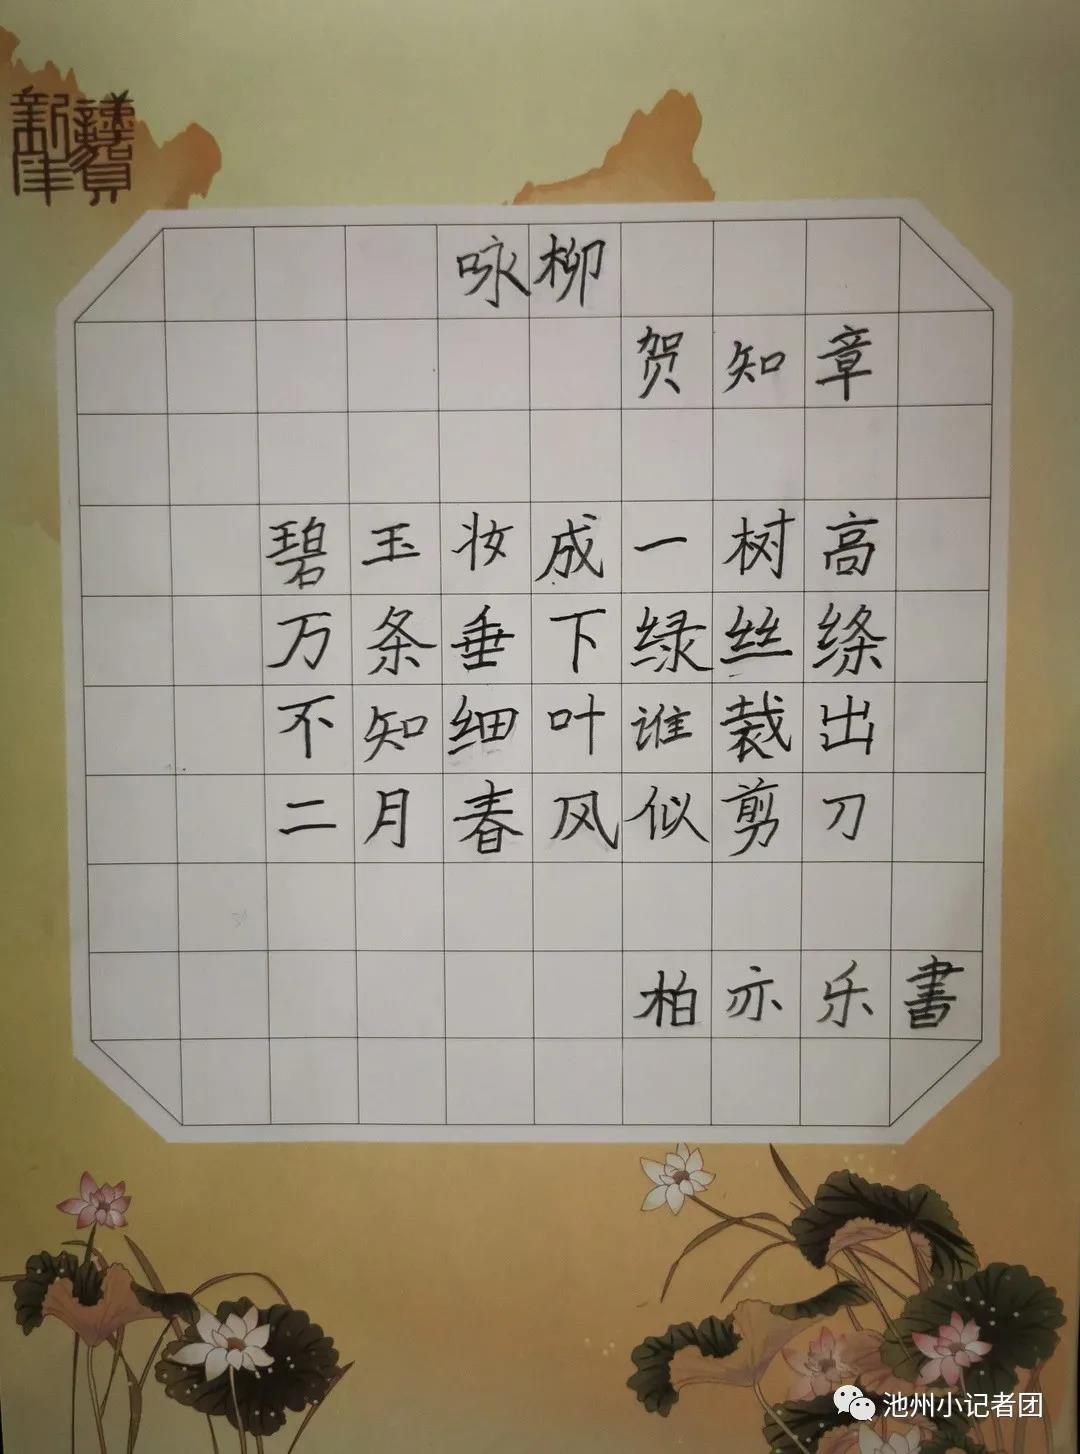 謹賀
新年
咏柳
贺知章
碧玉妆成一树高
万条垂下绿丝绦
不知细叶谁裁出
二月春风似剪刀
柏亦乐書
池州小记者团